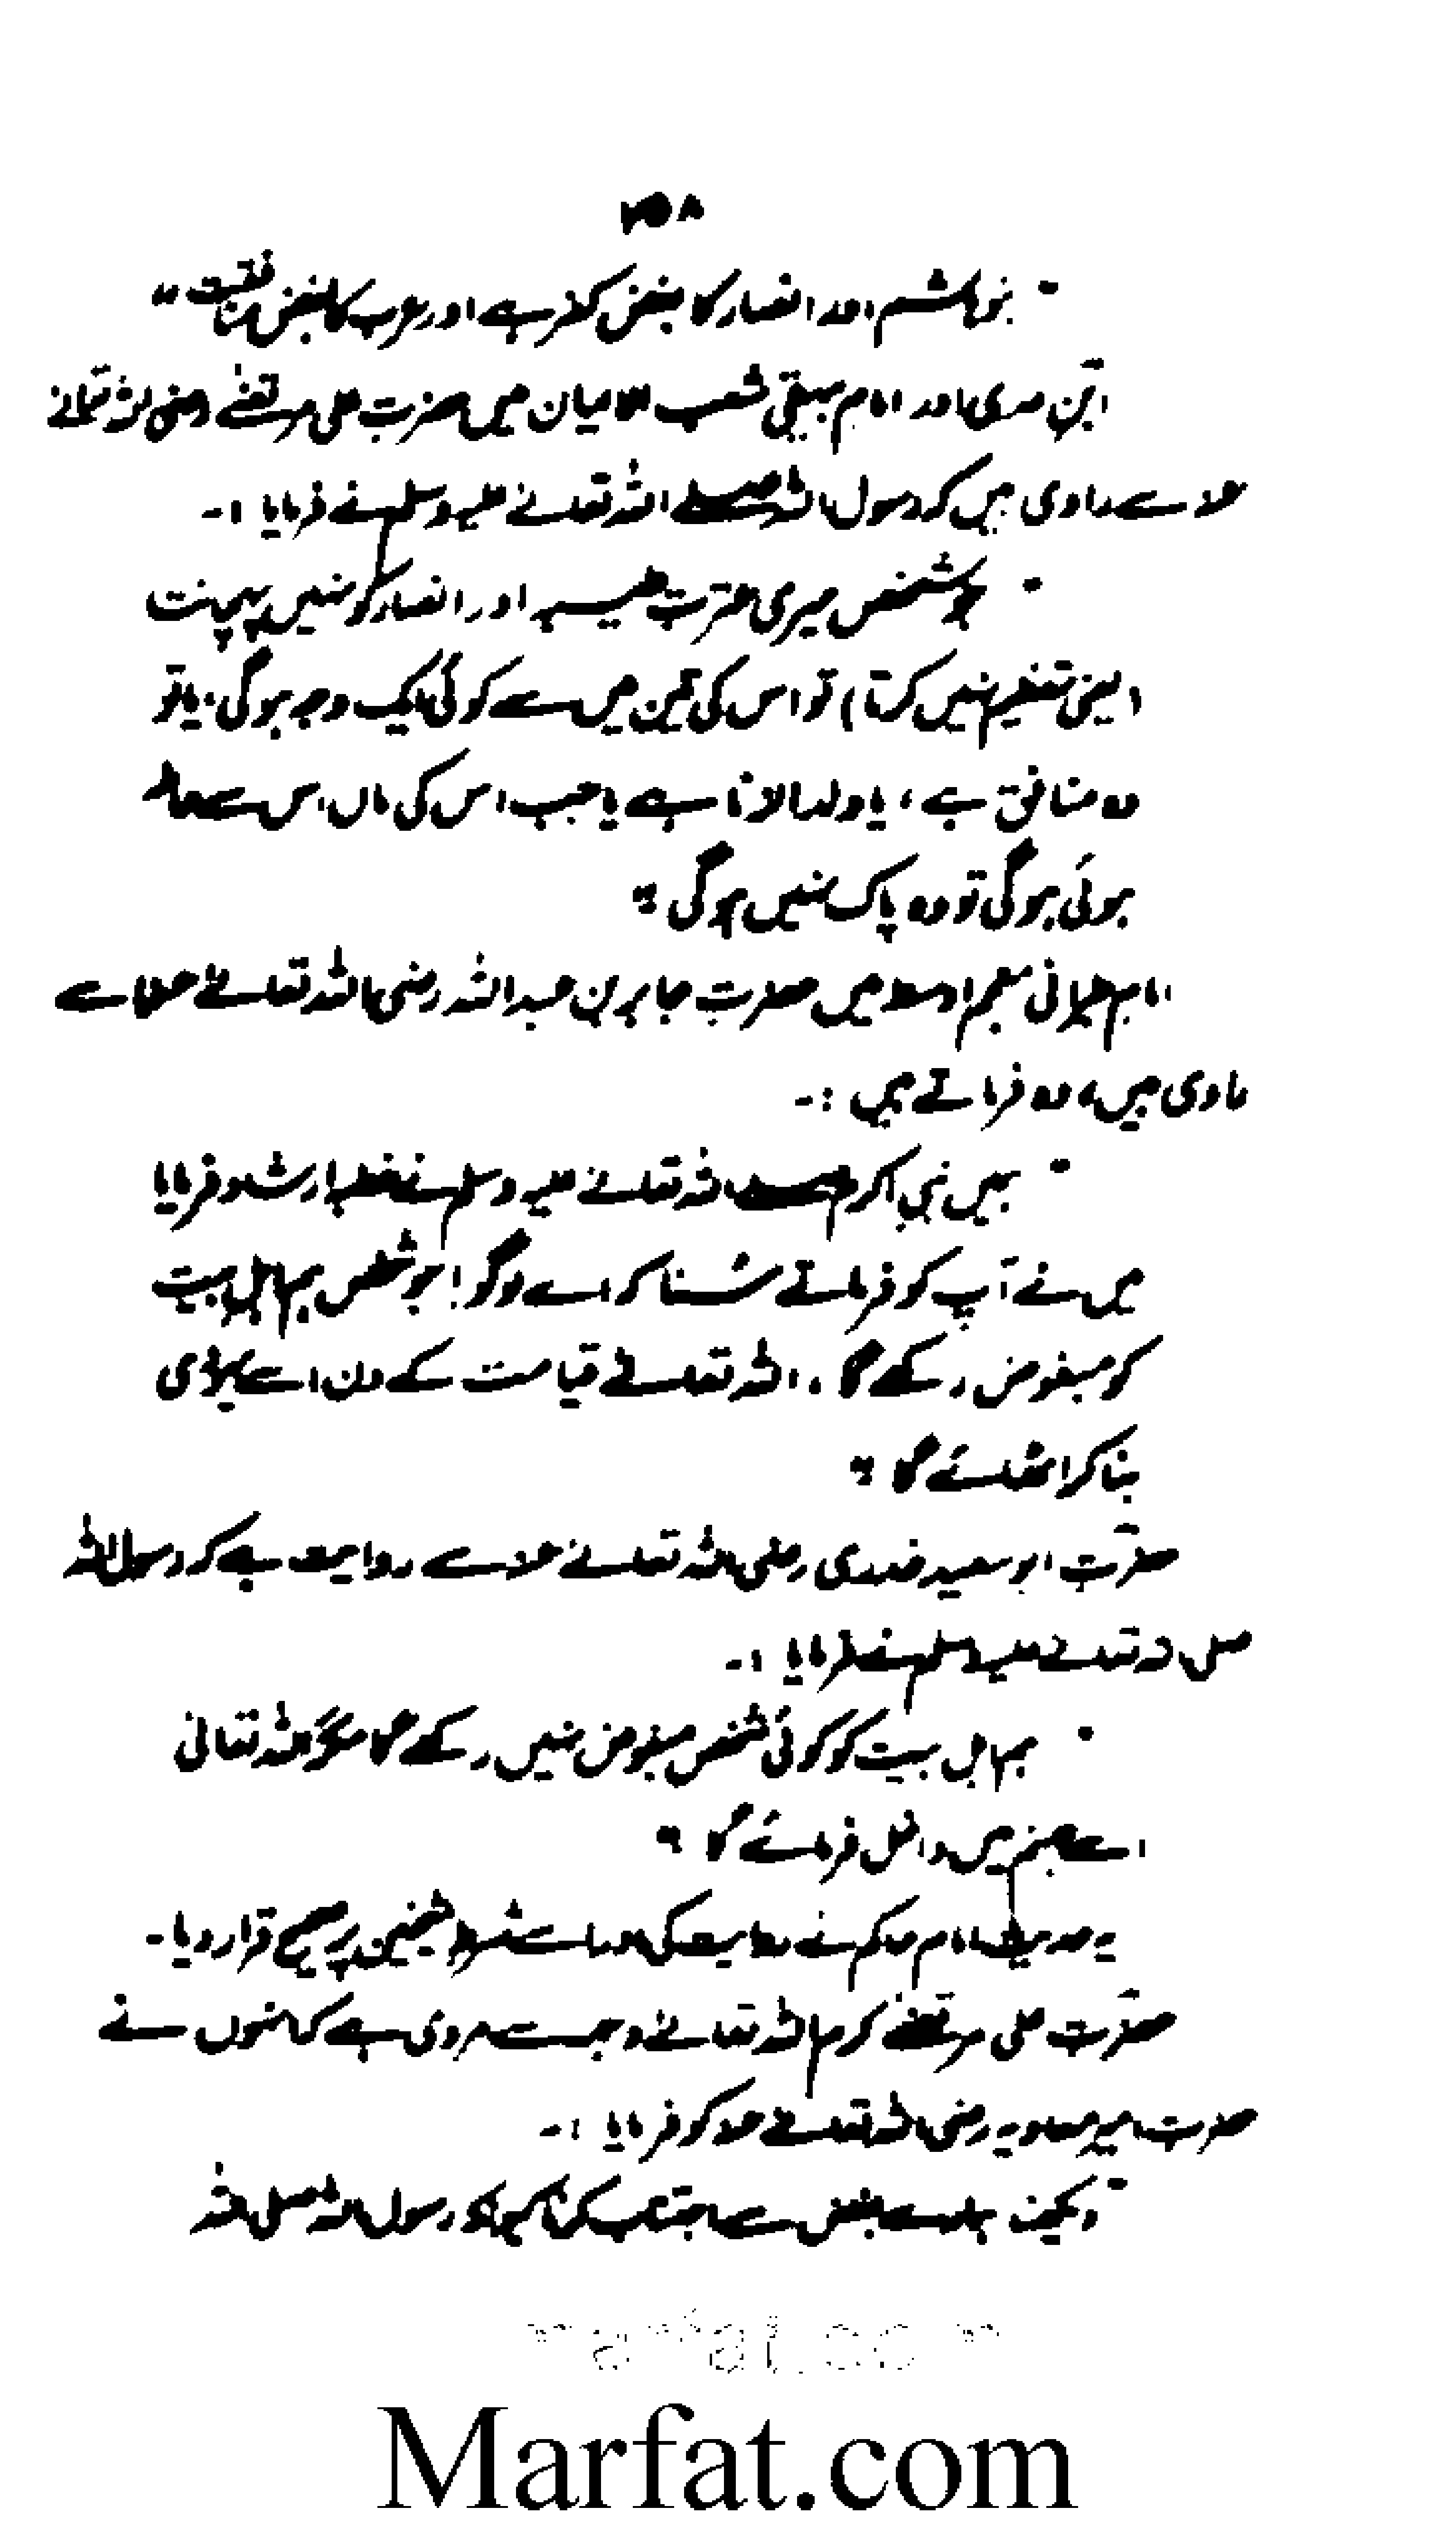 ۲۵۸
" بنو ہاشم اور انصار کا بغض کفر ہے اور عرب کا بغض منافقت "
ابن عدی اور امام بیہقی شعب الایمان میں حضرت علی مرتضےٰ رضی اللہ تعالےٰ
عنہ سے راوی ہیں کہ رسول اللہ صلے اللہ تعالےٰ علیہ وسلم نے فرمایا :-
" جو شخص میری عترت طیبہ اور انصار کو نہیں پہچانتا
(یعنی تعظیم نہیں کرتا) تو اس کی تین میں سے کوئی ایک وجہ ہوگی، یا تو
وہ منافق ہے، یا ولد الزنا ہے یا جب اس کی ماں اس سے حاملہ
ہوئی ہوگی تو وہ پاک نہیں ہوگی "
امام طبرانی معجم اوسط میں حضرت جابر بن عبد اللہ رضی اللہ تعالےٰ عنہما سے
راوی ہیں، وہ فرماتے ہیں :-
" ہمیں نبی اکرم صلے اللہ تعالےٰ علیہ وسلم نے خطبہ ارشاد فرمایا
میں نے آپ کو فرماتے سُنا کہ اے لوگو! جو شخص ہم اہل بیت
کو مبغوض رکھے گا، اللہ تعالےٰ قیامت کے دن اسے یہودی
بنا کر اٹھائے گا "
حضرت ابو سعید خدری رضی اللہ تعالےٰ عنہ سے روایت ہے کہ رسول اللہ
صلی اللہ تعالےٰ علیہ وسلم نے فرمایا :-
" ہم اہل بیت کو کوئی شخص مبغوض نہیں رکھے گا مگر اللہ تعالیٰ
اسے جہنم میں داخل فرمائے گا "
یہ حدیث امام حاکم نے روایت کی اور اسے شرط شیخین پر صحیح قرار دیا۔
حضرت علی مرتضےٰ کرم اللہ تعالےٰ وجہہ سے مروی ہے کہ انہوں نے
حضرت امیر معاویہ رضی اللہ تعالےٰ عنہ کو فرمایا :-
" دیکھنا ہمارے بغض سے اجتناب کرنا کیونکہ رسول اللہ صلی اللہ
marfat.com
Marfat.com